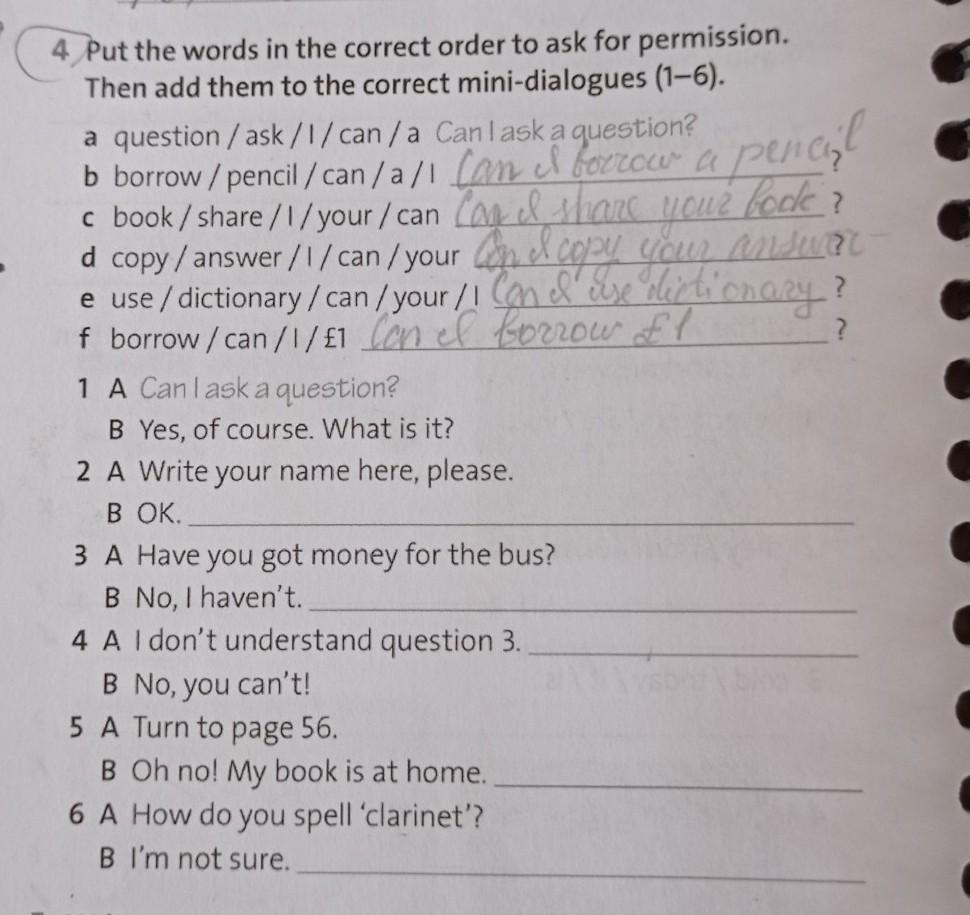 4 Put the words in the correct order to ask for permission.
Then add them to the correct mini-dialogues (1–6).
a question / ask / I / can / a Can I ask a question?
b borrow / pencil / can / a / I Can I borrow a pencil ?
c book / share / I / your / can Can I share your book ?
d copy / answer / I / can / your Can I copy your answer ?
e use / dictionary / can / your / I Can I use dictionary ?
f borrow / can / I / £1 Can I borrow £1 ?
1 A Can I ask a question?
B Yes, of course. What is it?
2 A Write your name here, please.
B OK.
3 A Have you got money for the bus?
B No, I haven't.
4 A I don't understand question 3.
B No, you can't!
5 A Turn to page 56.
B Oh no! My book is at home.
6 A How do you spell 'clarinet'?
B I'm not sure.